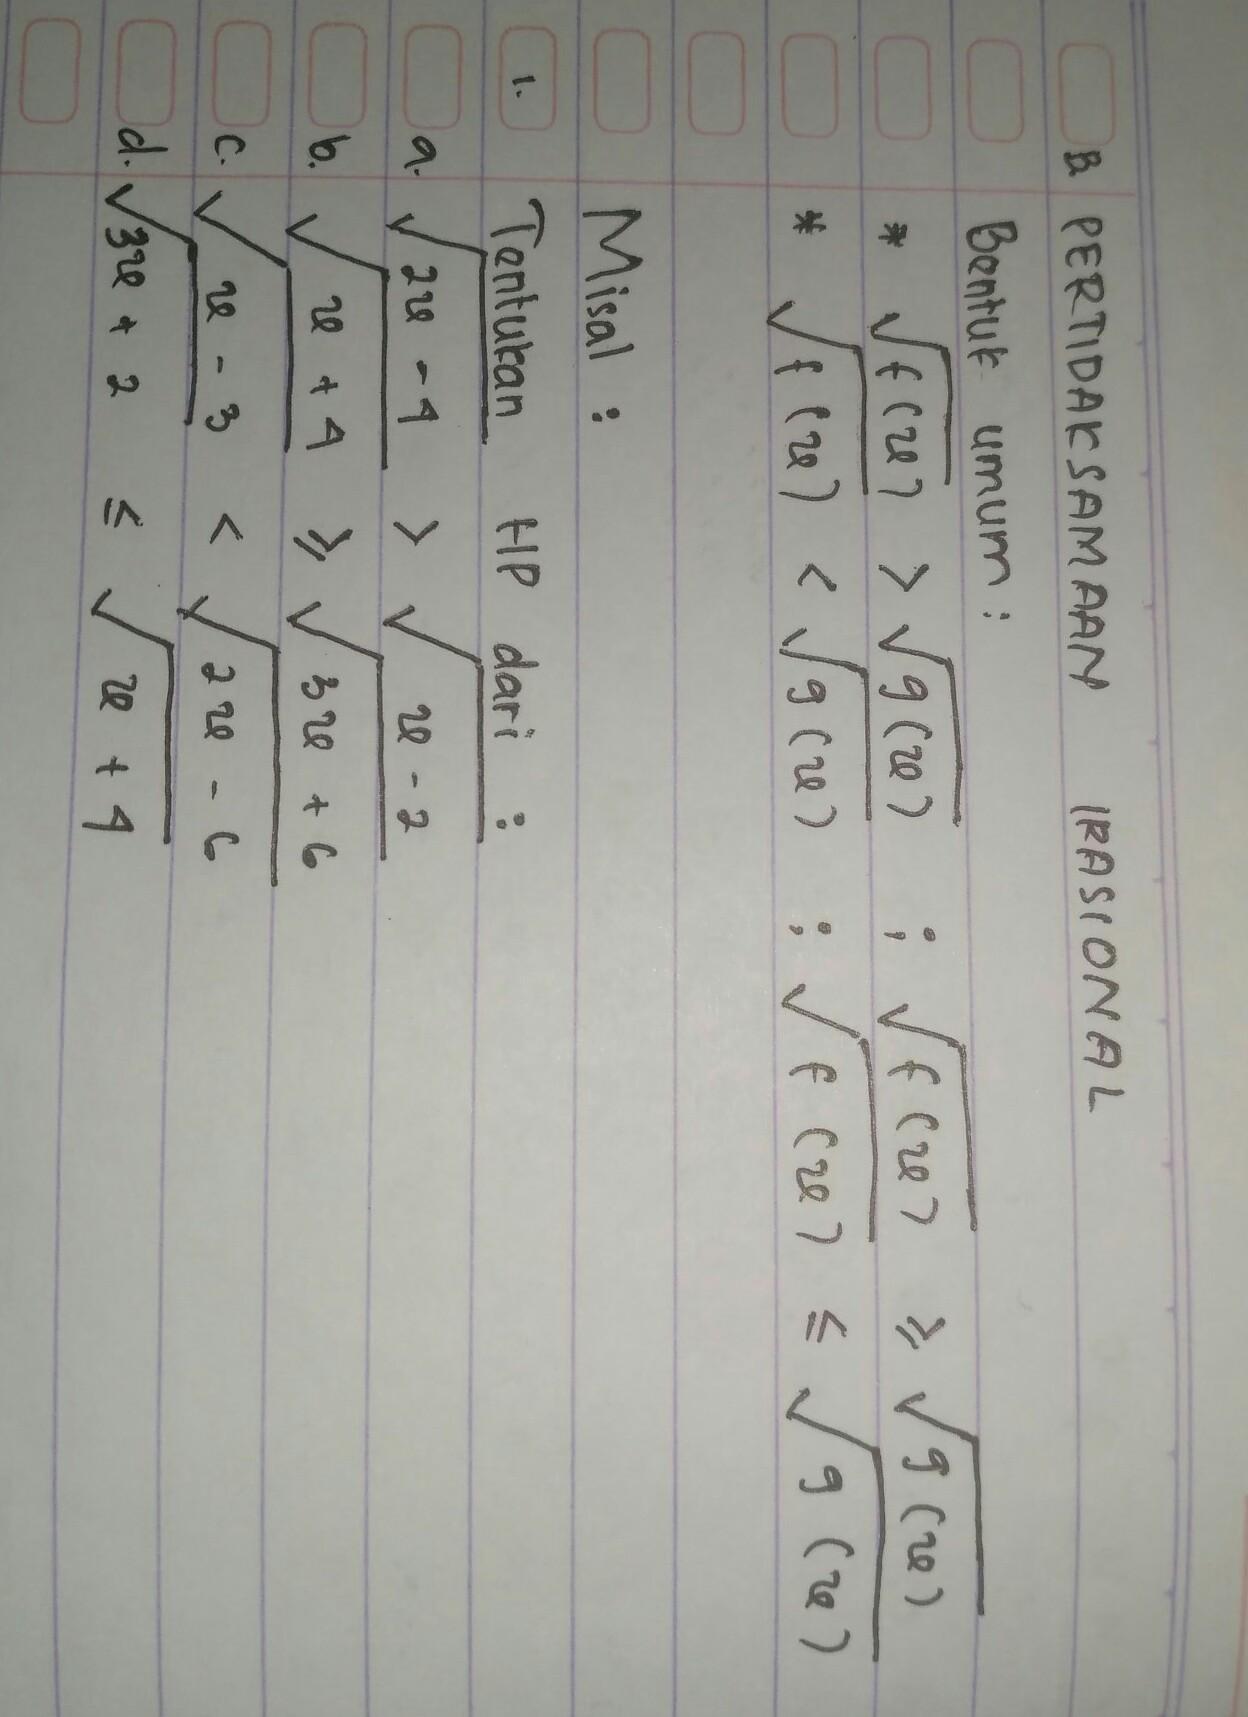 B PERTIDAKSAMAAN IRASIONAL
Bentuk umum :
* √f(x) > √g(x) ; √f(x) ≥ √g(x)
* √f(x) < √g(x) ; √f(x) ≤ √g(x)
Misal :
1. Tentukan HP dari :
a. √2x - 4 > √x - 2
b. √x + 4 ≥ √3x + 6
c. √x - 3 < √2x - 6
d. √3x + 2 ≤ √x + 4